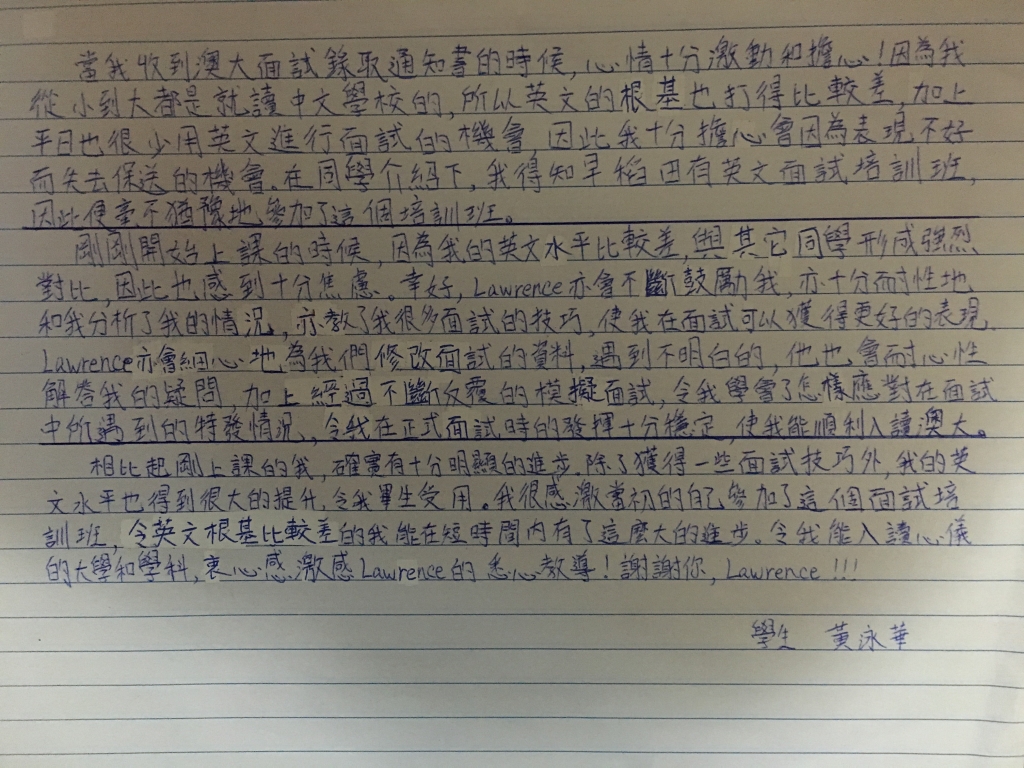 當我收到澳大面試錄取通知書的時候,心情十分激動和擔心!因為我
從小到大都是就讀中文學校的,所以英文的根基也打得比較差,加上
平日也很少用英文進行面試的機會,因此我十分擔心會因為表現不好
而失去保送的機會.在同學介紹下,我得知早稻田有英文面試培訓班,
因此便毫不猶豫地參加了這個培訓班。
剛剛開始上課的時候,因為我的英文水平比較差,與其它同學形成強烈
對比,因此也感到十分焦慮。幸好,Lawrence亦會不斷鼓勵我,亦十分耐性地
和我分析了我的情況,亦教了我很多面試的技巧,使我在面試可以獲得更好的表現.
Lawrence亦會細心地為我們修改面試的資料,遇到不明白的,他也會耐心性
解答我的疑問,加上經過不斷反覆的模擬面試,令我學會了怎樣應對在面試
中所遇到的特發情況,令我在正式面試時的發揮十分穩定,使我能順利入讀澳大。
相比起剛上課的我,確實有十分明顯的進步.除了獲得一些面試技巧外,我的英
文水平也得到很大的提升,令我畢生受用。我很感激當初的自己參加了這個面試培
訓班,令英文根基比較差的我能在短時間內有了這麼大的進步.令我能入讀心儀
的大學和學科,衷心感激感Lawrence的悉心教導!謝謝你,Lawrence!!!
學生 黃泳華